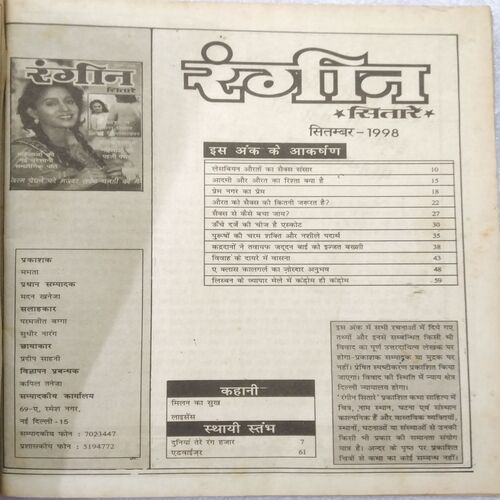 रंगीन
सितारे
प्रकाशक
ममता
प्रधान सम्पादक
मदन खनेजा
सलाहकार
परमजीत बग्गा
सुधीर नारंग
छायाकार
प्रदीप साहनी
विज्ञापन प्रबन्धक
कपिल तनेजा
सम्पादकीय कार्यालय
69-ए, रमेश नगर,
नई दिल्ली-15
सम्पादकीय फोन : 7023447
प्रशासकीय फोन : 5194772
रंगीन
सितारे
सितम्बर-1998
इस अंक के आकर्षण
लेसबियन औरतों का सैक्स संसार 10
आदमी और औरत का रिश्ता क्या है 15
प्रेम नगर का प्रेम 18
औरत को सैक्स की कितनी जरूरत है? 22
सैक्स से कैसे बचा जाय? 27
ऊँचे दर्जे की चीज है एस्कोर्ट 30
पुरूषों की चरम शक्ति और नशीले पदार्थ 35
कद्रदानों ने तवायफ जद्दन बाई को इज्जत बख्शी 38
विवाह के दायरे में वासना 43
ए क्लास कालगर्ल का ज़ोरदार अनुभव 48
लिस्बन के व्यापार मेले में कंडोम ही कंडोम 59
कहानी
मिलन का सुख
लाइसेंस
स्थायी स्तंभ
दुनियां तेरे रंग हजार 7
एडवाईजर 61
इस अंक में सभी रचनाओं में दिये गए
तथ्यों और इनसे सम्बन्धित किसी भी
विवाद का पूर्ण उत्तरदायित्व लेखक पर
होगा-प्रकाशक सम्पादक या मुद्रक पर
नहीं। प्रेषित स्पष्टीकरण प्रकाशित किया
जाएगा। विवाद की स्थिति में न्याय क्षेत्र
दिल्ली न्यायालय होगा।
'रंगीन सितारे' प्रकाशित कथा साहित्य में
चित्र, नाम स्थान, घटना एवं संस्थान
काल्पनिक हैं और वास्तविक व्यक्तियों,
स्थानों, घटनाओं या संस्थाओं से उनकी
किसी भी प्रकार की समानता संयोग
मात्र है। अन्दर के पृष्ठ पर प्रकाशित
चित्रों से कथा का कोई सम्बन्ध नहीं।